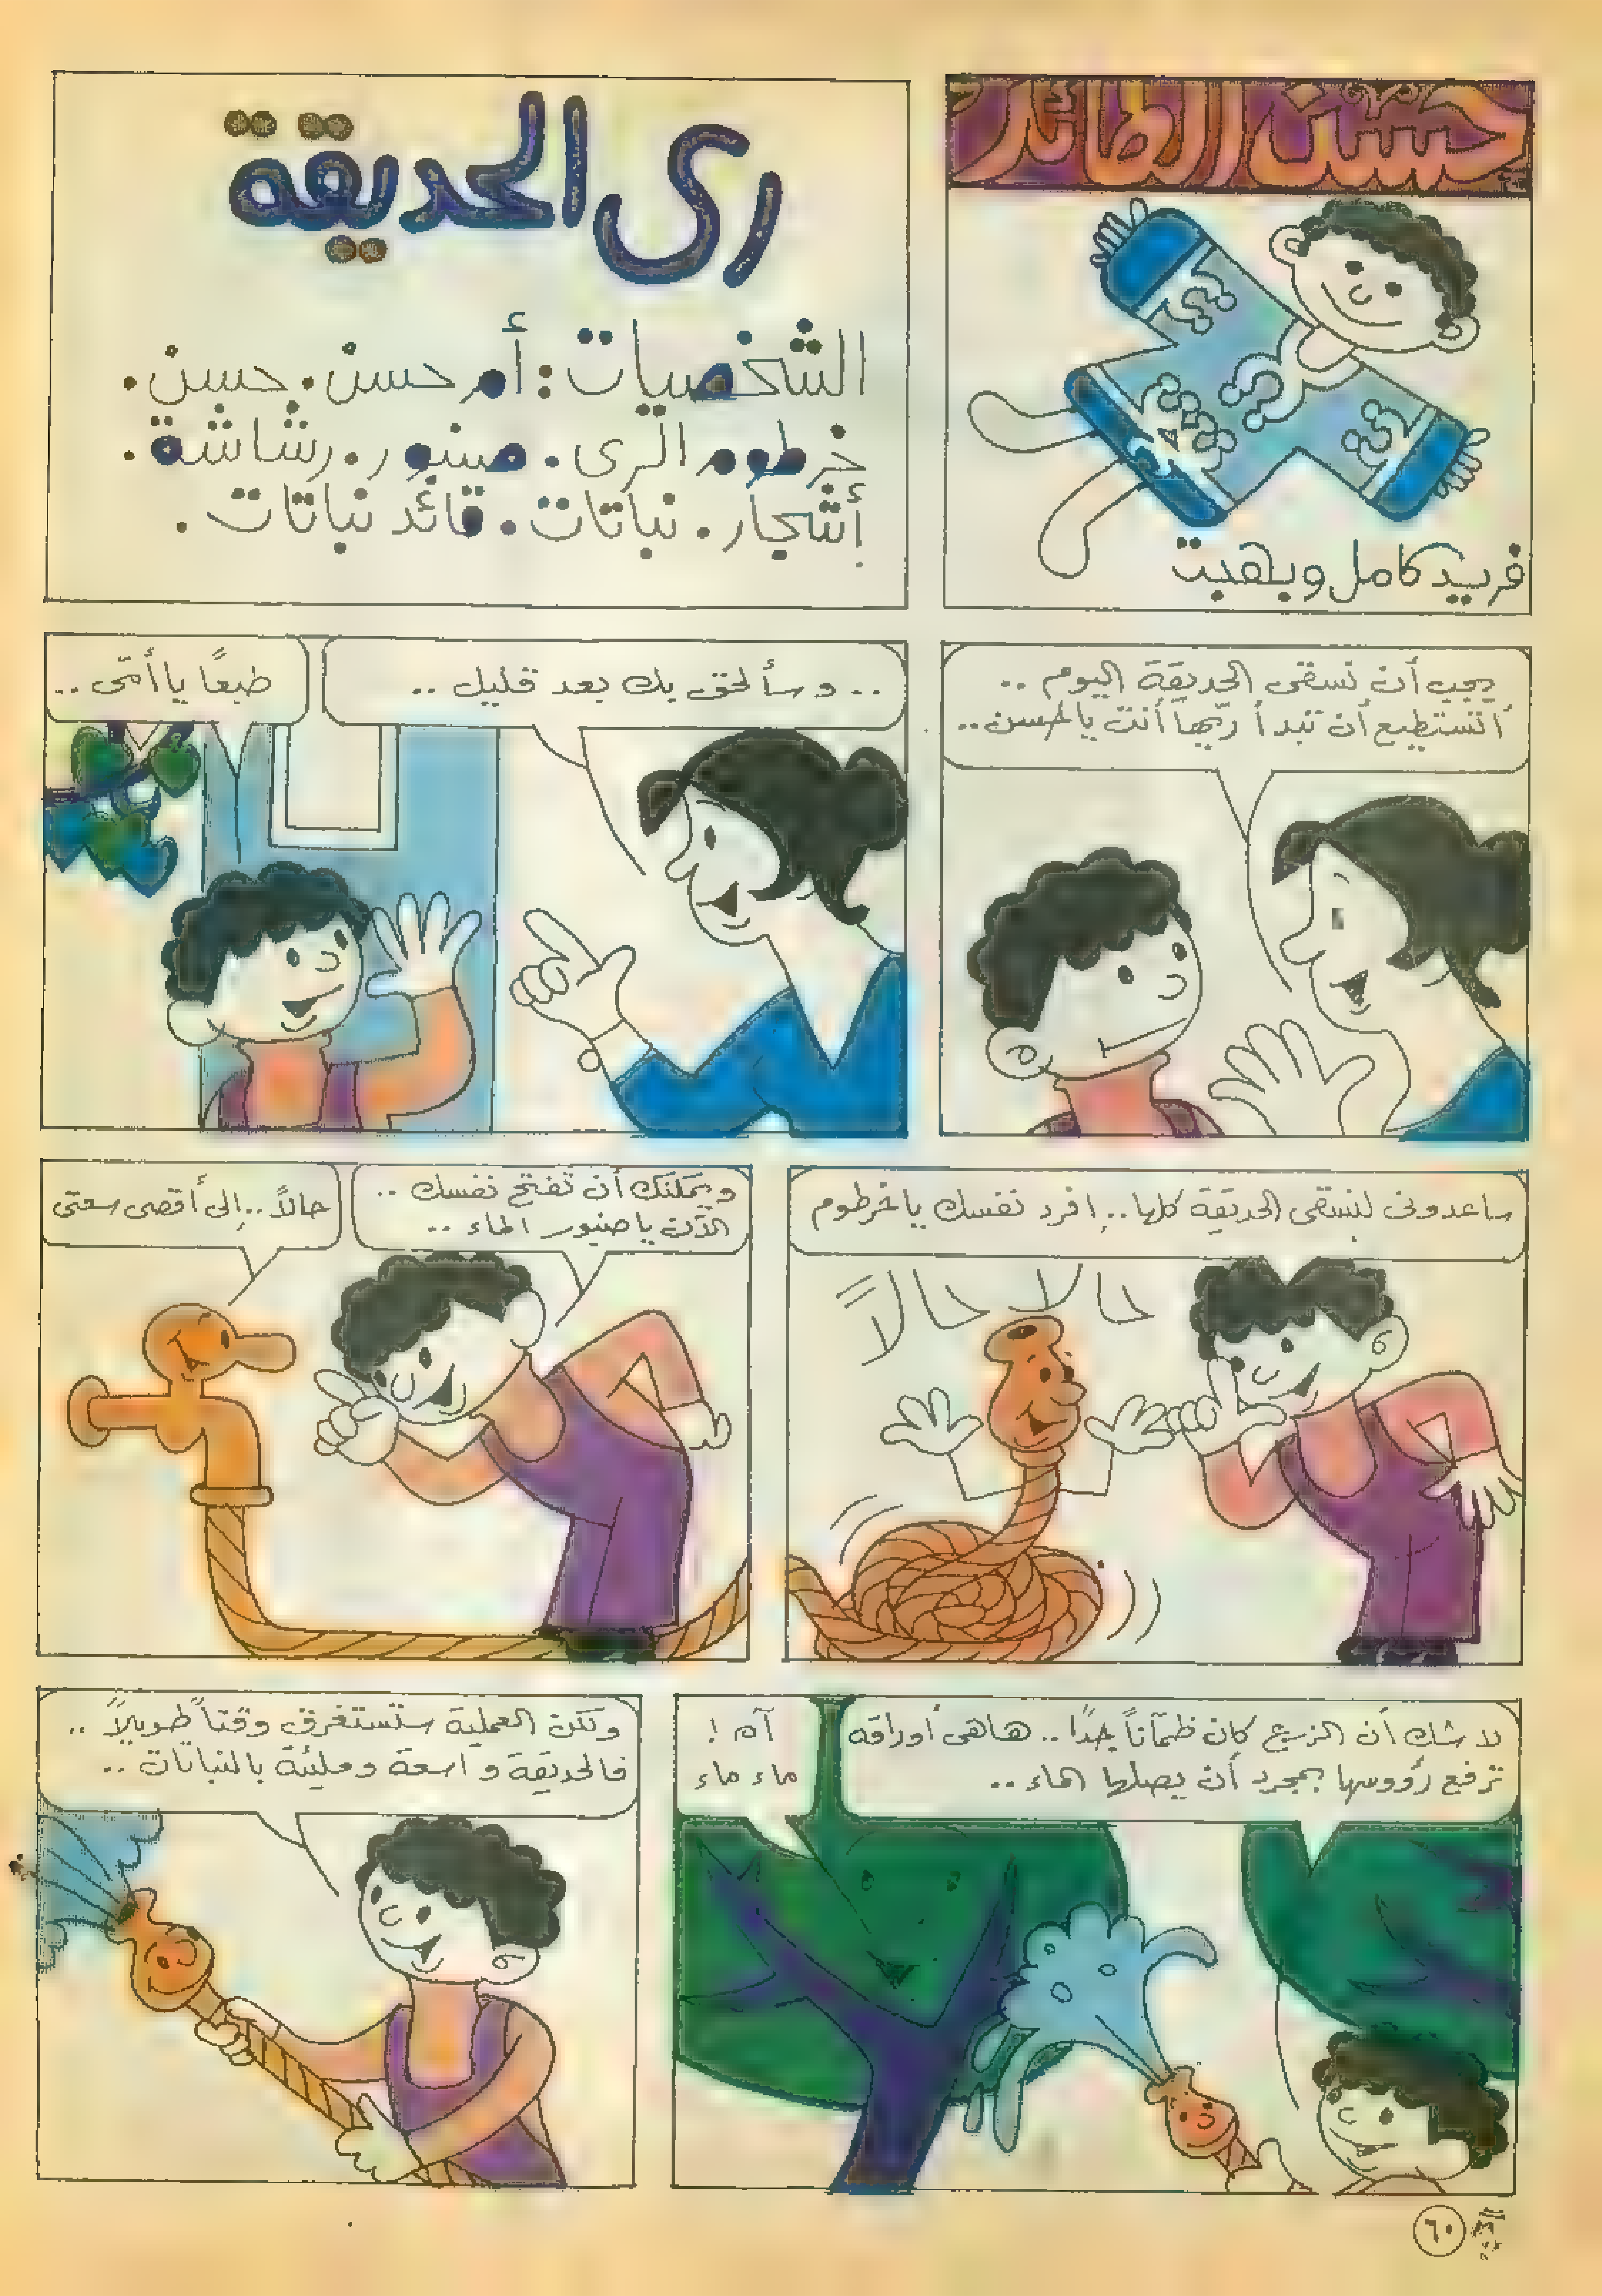 حسن الطائر
فريد كامل وبهجت
رى الحديقة
الشخصيات: أم حسن. حسن.
خرطوم الرى. صنبور. رشاشة.
أشجار. نباتات. قائد نباتات.
يجب أن نسقى الحديقة اليوم ..
أتستطيع أن تبدأ ريها أنت يا حسن..
.. وسألحق بك بعد قليل ..
طبعًا يا أمى ..
ساعدونى لنسقى الحديقة كلها.. افرد نفسك يا خرطوم
حالا حالاً
ويمكنك أن تفتح نفسك ..
الآن يا صنبور الماء ..
حالاً.. إلى أقصى سعتى
لا شك أن الزرع كان ظمآناً جدًا.. هاهى أوراقه
ترفع رؤوسها بمجرد أن يصلها الماء..
آه !
ماء ماء
ولكن العملية ستستغرق وقتاً طويلاً ..
فالحديقة واسعة ومليئة بالنباتات ..
٦٠